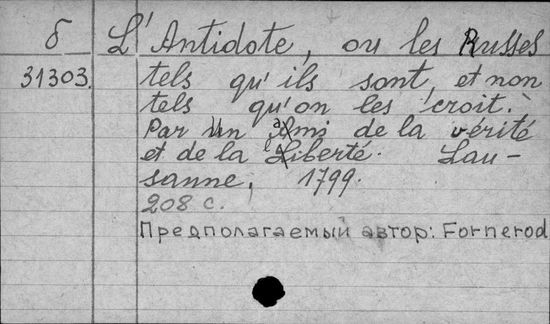 б L'Antidote, ou les Russes
31303. tels qu'ils sont, et non
tels qu'on les croit.
Par un ami de la vérité
et de la liberté. Lau-
sanne, 1799.
208 с.
Предполагаемый автор: Fornerod